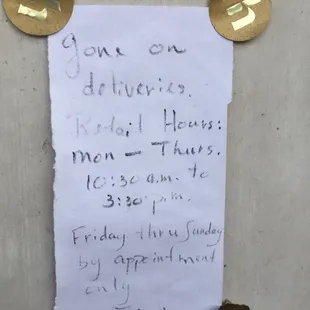 gone on
deliveries.
Retail Hours:
mon - Thurs.
10:30 a.m. to
3:30 p.m.
Friday thru Sunday
by appointment
only